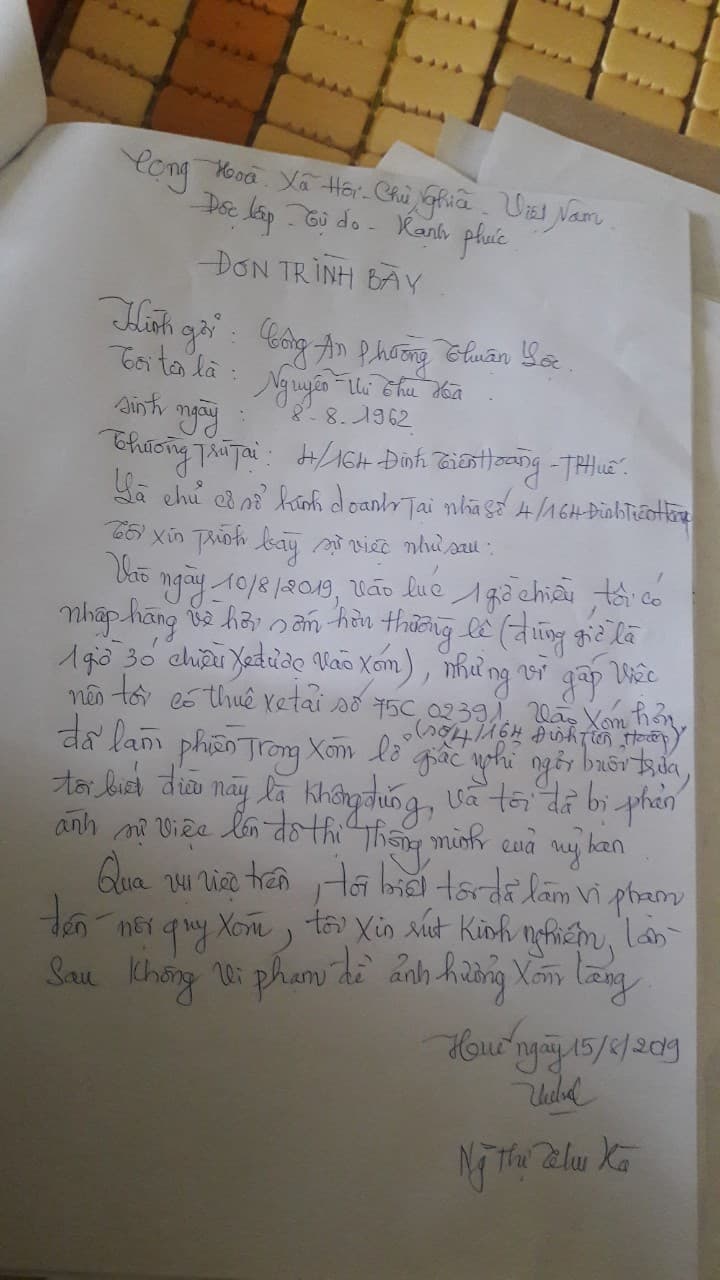 Cộng Hoà Xã Hội Chủ Nghĩa Việt Nam
Độc lập - Tự do - Hạnh phúc
ĐƠN TRÌNH BÀY
Kính gởi : Công An Phường Thuận Lộc.
Tôi tên là : Nguyễn Thị Thu Hà
sinh ngày : 8-8-1962
Thường Trú Tại : 4/164 Đinh Tiên Hoàng - TP Huế.
Là chủ cơ sở kinh doanh Tại nhà số 4/164 Đinh Tiên Hoàng
Tôi xin Trình bày sự việc như sau :
Vào ngày 10/8/2019, vào lúc 1 giờ chiều, tôi có
nhập hàng về hơi sớm hơn thường lệ (đúng giờ là
1 giờ 30 chiều xe được vào xóm), nhưng vì gấp việc
nên tôi có thuê xe tải số 75C 02391 vào xóm
(số 4/164 Đinh Tiên Hoàng)
đã làm phiền trong xóm lở giấc nghỉ ngơi buổi trưa,
tôi biết điều này là không đúng, và tôi đã bị phản
ánh sự việc lên đô thị Thông minh của uỷ ban
Qua vụ việc trên, tôi biết tôi đã làm vi phạm
đến nội quy xóm, tôi xin rút kinh nghiệm, lần
sau không vi phạm để ảnh hưởng xóm làng
Huế ngày 15/8/2019
Ng Thị Thu Hà